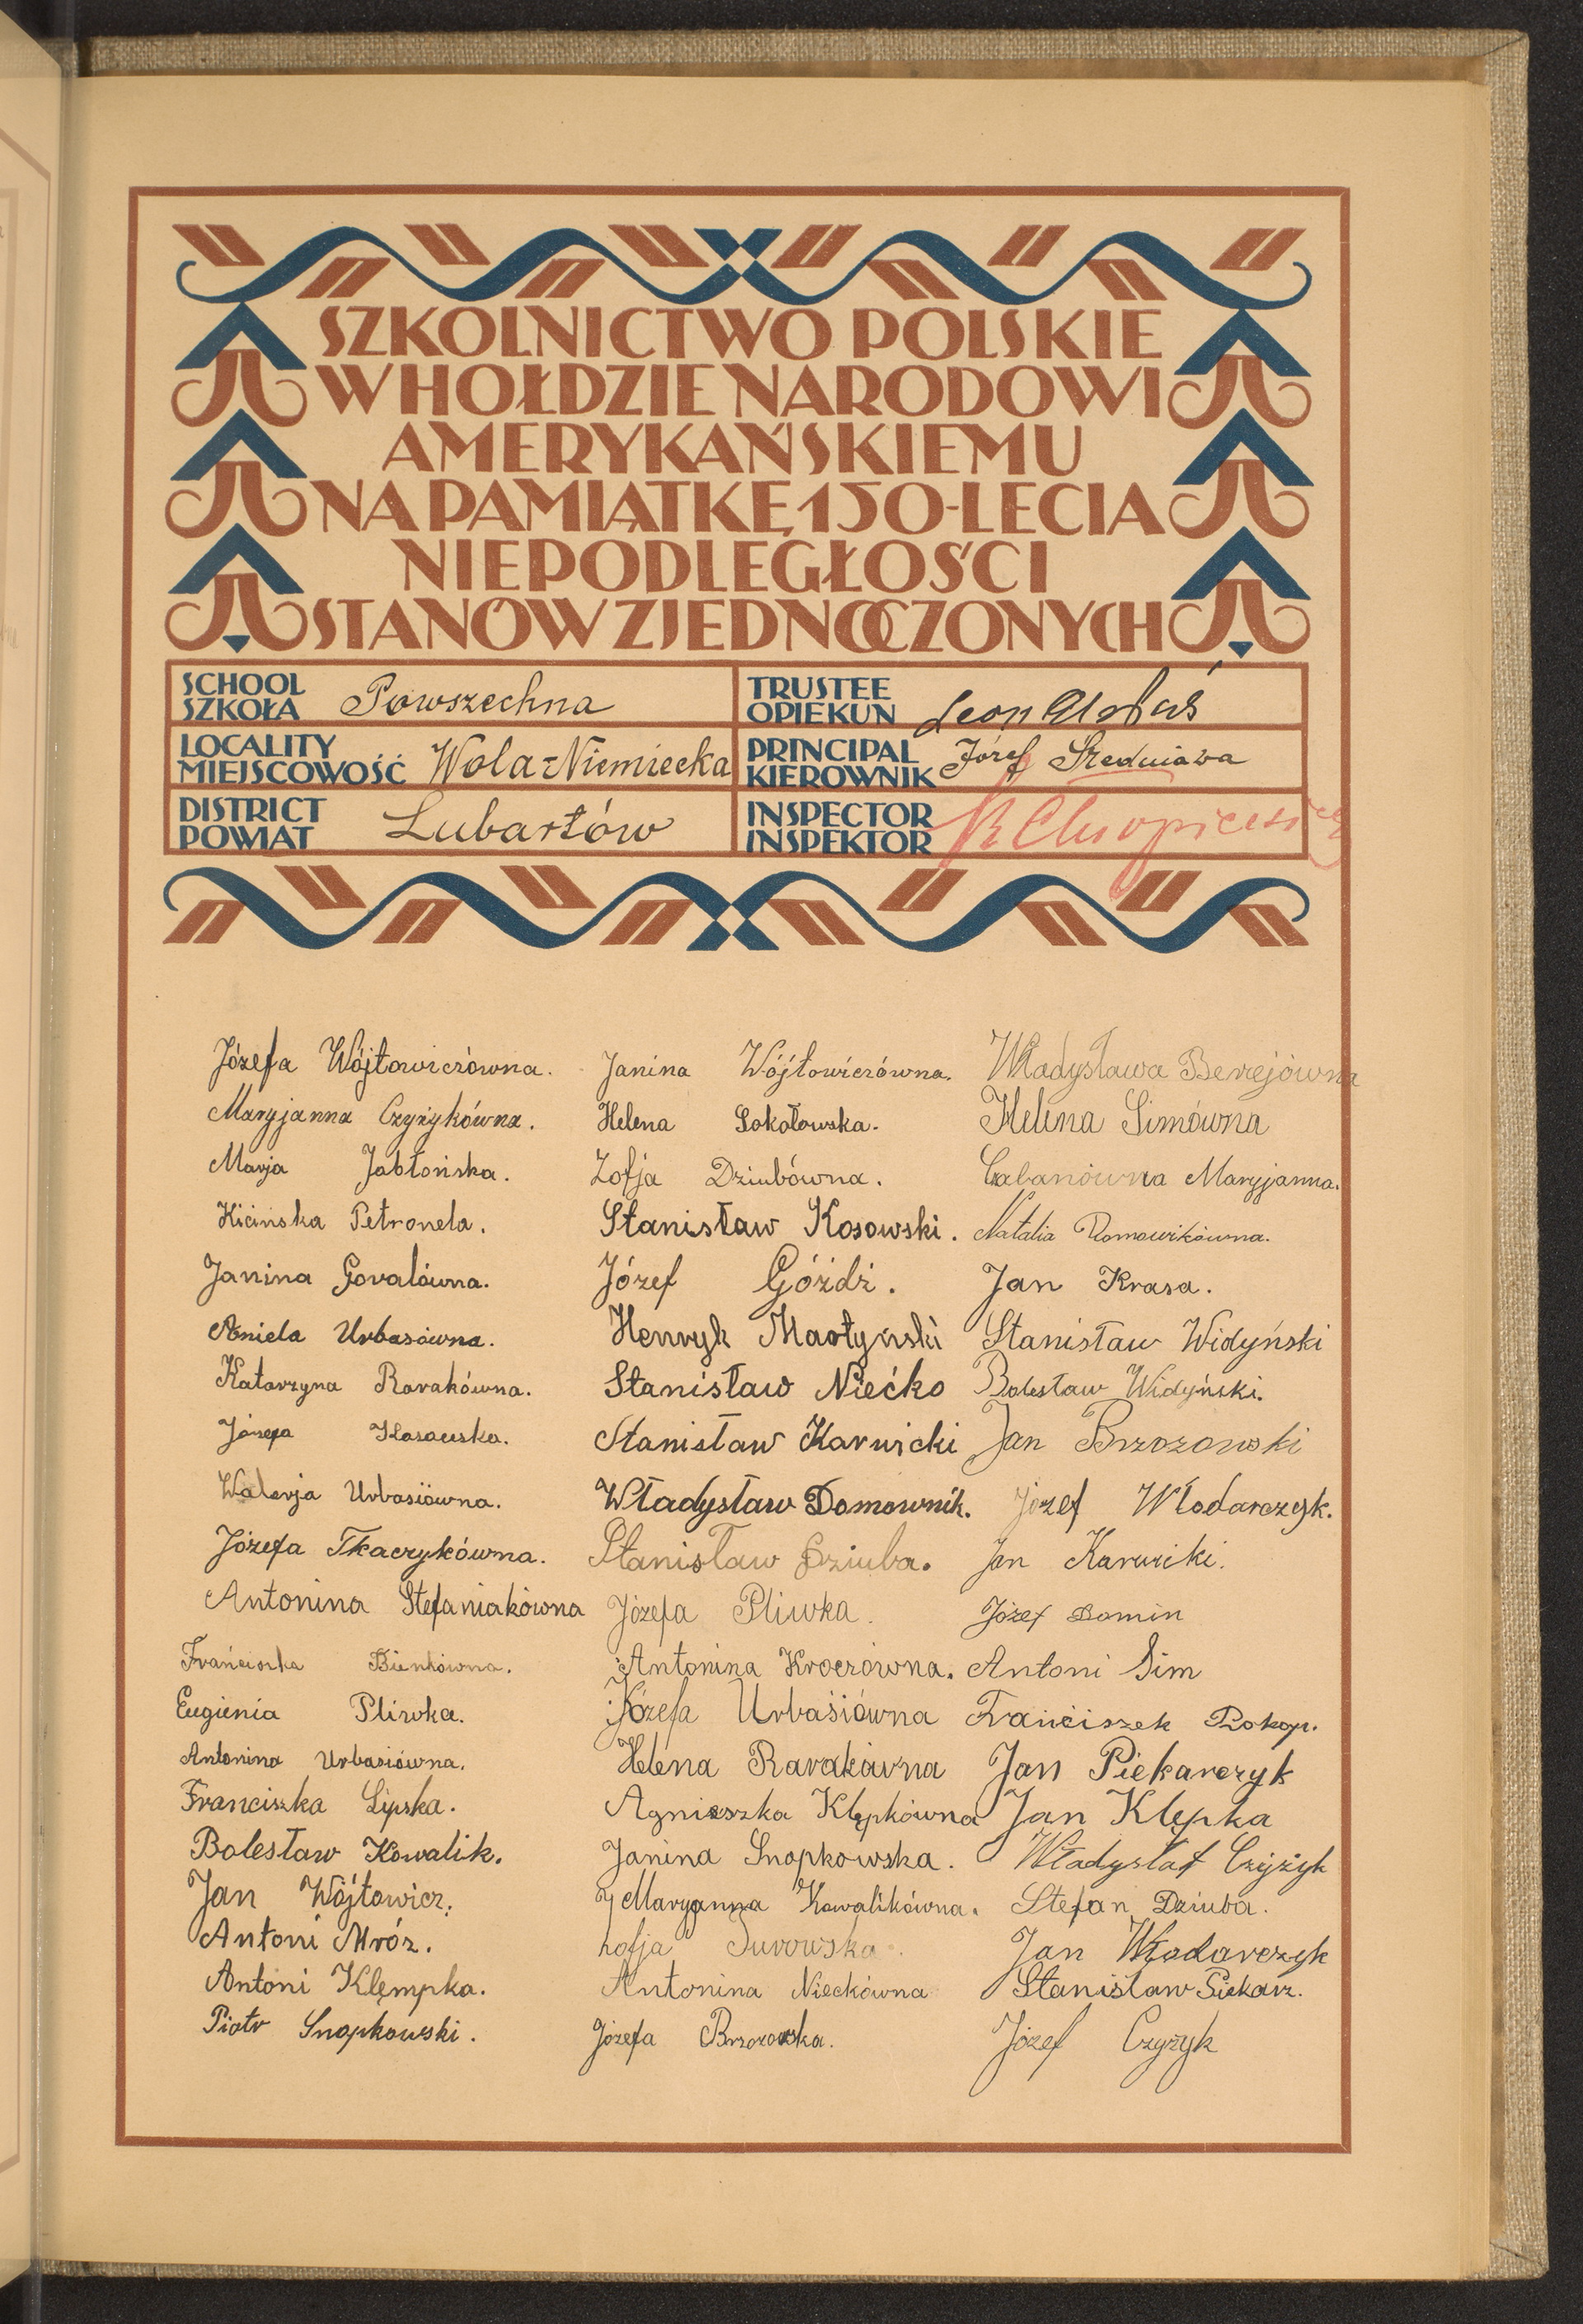 SZKOLNICTWO POLSKIE
W HOŁDZIE NARODOWI
AMERYKAŃSKIEMU
NA PAMIĄTKĘ 150-LECIA
NIEPODLEGŁOŚCI
STANÓW ZJEDNOCZONYCH
SCHOOL
SZKOŁA Powszechna
TRUSTEE
OPIEKUN Leon
LOCALITY
MIEJSCOWOŚĆ Wola-Niemiecka
PRINCIPAL
KIEROWNIK Józef Średniawa
DISTRICT
POWIAT Lubartów
INSPECTOR
INSPEKTOR
Józefa Wójtowiczówna.
Maryjanna Czyżykówna.
Marja Jabłońska.
Kicińska Petronela.
Janina Govalówna.
Aniela Urbasówna.
Katarzyna Rarakówna.
Józefa
Walerja Urbasiówna.
Józefa Tkaczykówna.
Antonina Stefaniakówna
Franciszka Bieńkówna.
Eugienia Pliwka.
Antonina Urbasiówna.
Franciszka Lipska.
Bolesław Kowalik.
Jan Wójtowicz.
Antoni Mróz.
Antoni Klempka.
Piotr Snopkowski.
Janina Wójtowiczówna.
Helena Sokołowska.
Zofja Dziubówna.
Stanisław Kosowski.
Józef Góźdź.
Henryk Martyński
Stanisław Niećko
Stanisław Karwicki
Władysław Domownik.
Stanisław Dziuba.
Józefa Pliwka.
Antonina Kroczówna.
Józefa Urbasiówna
Helena Rarakówna
Agnieszka Klępkówna
Janina Snopkowska.
Maryanna Kowalikówna.
Zofja Surowska.
Antonina Niećkówna
Józefa Brzozowska.
Władysława Berejówna
Helena Simówna
Cabanówna Maryjanna.
Natalia Domownikówna.
Jan Krasa.
Stanisław Widyński
Bolesław Widyński.
Jan Brzozowski
Józef Włodarczyk.
Jan Karwicki.
Józef Domin
Antoni Sim
Franciszek Prokop.
Jan Piekarczyk
Jan Klępka
Władysław Czyżyk
Stefan Dziuba.
Jan Włodarczyk
Stanisław Piekarz.
Józef Czyżyk